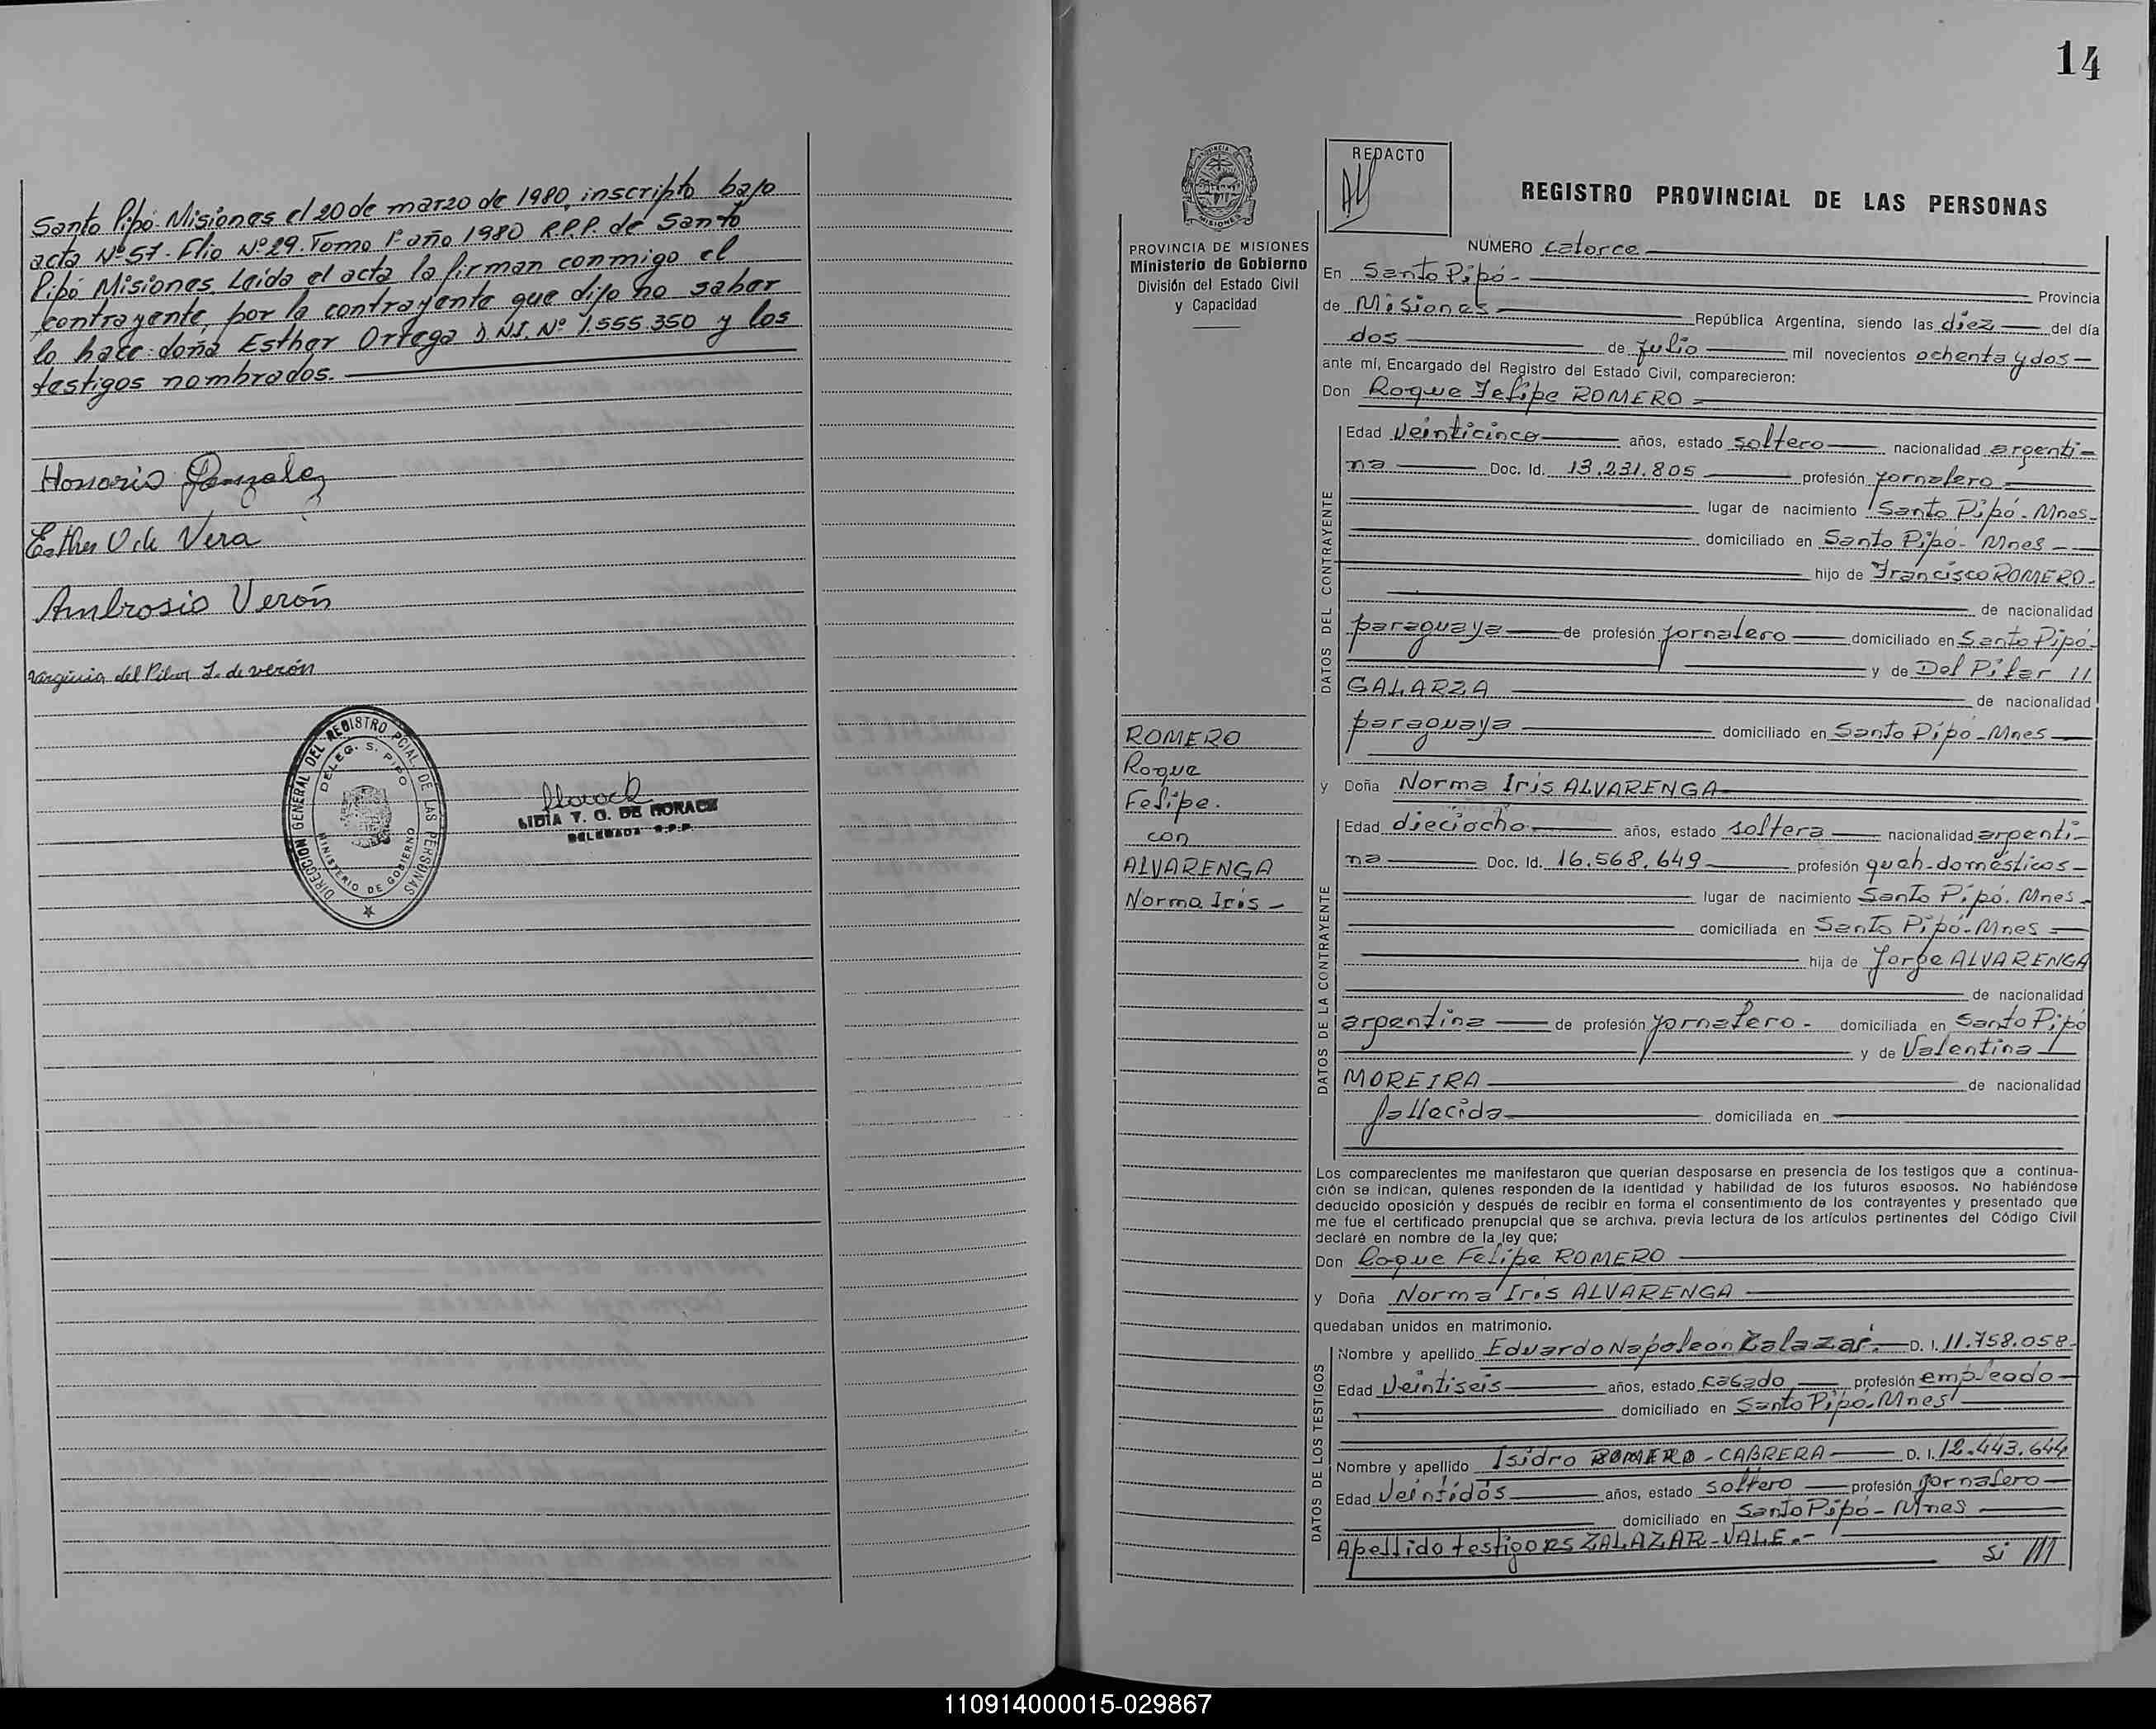 Santo Pipó-Misiones el 20 de marzo de 1980, inscripto bajo
acta Nº 57 - Flio Nº 29. Tomo 1º año 1980 R.P.P. de Santo
Pipó Misiones. Leida el acta la firman conmigo el
contrayente, por la contrayente que dijo no saber
lo hace: doña Esther Ortega D.N.I. Nº 1.555.350 y los
testigos nombrados.
Honorio Gonzalez
Esther O de Vera
Ambrosio Verón
Virginia del Pilar I. de verón
DIRECCION GENERAL DEL REGISTRO PCIAL. DE LAS PERSONAS
DELEG. S. PIPO
MINISTERIO DE GOBIERNO
LIDIA T. O. DE HORACK
DELEGADA R.P.P.
14
REDACTO
REGISTRO PROVINCIAL DE LAS PERSONAS
PROVINCIA DE MISIONES
Ministerio de Gobierno
División del Estado Civil
y Capacidad
ROMERO
Roque
Felipe.
con
ALVARENGA
Norma Iris -
NUMERO catorce
En Santo Pipó - Provincia
de Misiones República Argentina, siendo las diez del día
dos de Julio mil novecientos ochenta y dos -
ante mí, Encargado del Registro del Estado Civil, comparecieron:
Don Roque Felipe ROMERO
DATOS DEL CONTRAYENTE
Edad veinticinco años, estado soltero nacionalidad argenti-
na Doc. Id. 13.231.805 profesión jornalero
lugar de nacimiento Santo Pipó - Mnes -
domiciliado en Santo Pipó - Mnes -
hijo de Francisco ROMERO -
de nacionalidad
paraguaya de profesión jornalero domiciliado en Santo Pipó -
y de Del Pilar
GALARZA de nacionalidad
paraguaya domiciliado en Santo Pipó - Mnes
y Doña Norma Iris ALVARENGA
DATOS DE LA CONTRAYENTE
Edad dieciocho años, estado soltera nacionalidad argenti-
na Doc. Id. 16.568.649 profesión queh-domésticos -
lugar de nacimiento Santo Pipó. Mnes -
domiciliada en Santo Pipó - Mnes
hija de Jorge ALVARENGA
de nacionalidad
argentina de profesión jornalero - domiciliada en Santo Pipó
y de Valentina
MOREIRA de nacionalidad
fallecida domiciliada en
Los comparecientes me manifestaron que querían desposarse en presencia de los testigos que a continua-
ción se indican, quienes responden de la identidad y habilidad de los futuros esposos. No habiéndose
deducido oposición y después de recibir en forma el consentimiento de los contrayentes y presentado que
me fue el certificado prenupcial que se archiva, previa lectura de los artículos pertinentes del Código Civil
declaré en nombre de la ley que;
Don Roque Felipe ROMERO
y Doña Norma Iris ALVARENGA
quedaban unidos en matrimonio.
DATOS DE LOS TESTIGOS
Nombre y apellido Eduardo Napoleon Zalazar D. I. 11.758.058
Edad Veintiseis años, estado casado profesión empleado
domiciliado en Santo Pipó. Mnes
Nombre y apellido Isidro ROMERO - CABRERA D. I. 12.443.644
Edad Veintidos años, estado soltero profesión jornalero
domiciliado en Santo Pipó - Mnes
Apellido testigo RS ZALAZAR - VALE. -
110914000015-029867